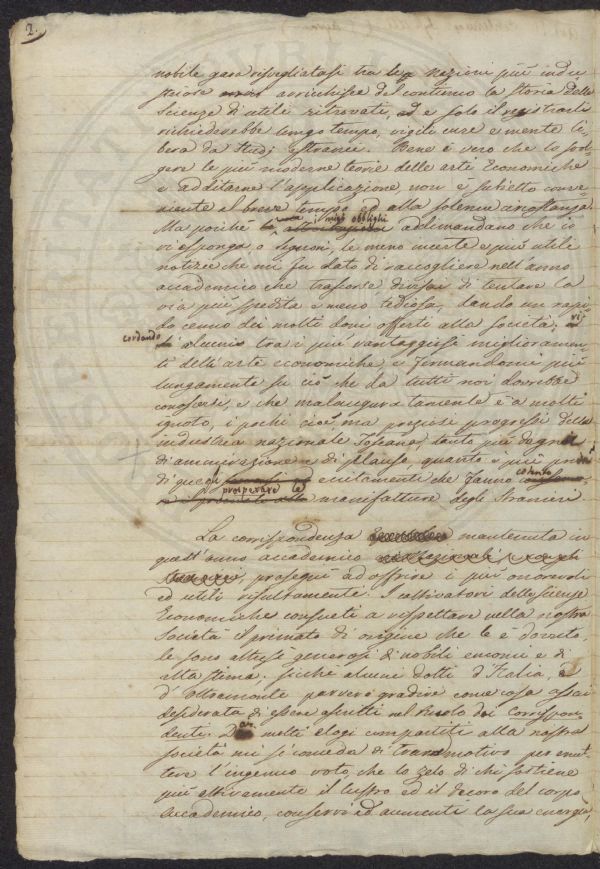 2.
nobile gara risvegliatasi tra le nazioni più indu
striose arricchisce del continuo la storia delle
Scienze di utili ritrovati, ed e solo il registrarli
richiederebbe lungo tempo, vigili cure e mente li
bera da studj estranei. Bene è vero che lo svol
gere le più moderne teorie delle arti Economiche
e additarne l'applicazione non è subietto conve
niente al breve tempo ed alla solenne circostanza.
Ma poichè i miei obblighi addimandano che io
vi esponga o Signori, le meno incerte e più utili
notizie che mi fu dato di raccogliere nell'anno
accademico che trascorse divisai di tentare la
via più spedita e meno tediosa, dando un rapi
do cenno dei molti doni offerti alla società, ri
cordando alcuni tra i più vantaggiosi miglioramen
ti dell'arte economiche, e fermandomi più
lungamente su ciò che da tutti noi dovrebbe
conoscersi, e che malauguratamente è a molti
ignoto, i pochi cioè, ma preziosi progressi della
industria nazionale Toscana, tanto più degni
di ammirazione e di plauso, quanto e più
di quegli eccitamenti che fanno cotanto
prosperare le manifatture degli Stranieri
La corrispondenza mantenuta in
quest'anno accademico
proseguì ad offrire i più onorevoli
ed utili resultamenti. I cultivatori delle scienze
Economiche consueti a rispettare nella nostra
Società il primato di origine che le è dovuto,
le sono altresì generosi di nobili encomi e di
alta stima, sicche alcuni dotti d'Italia, e
d'oltremonte parvero gradire come cosa assai
desiderata di essere ascritti nel Ruolo dei Corrispon
denti. Dai molti elogi compartiti alla nostra
società mi si conceda di trar motivo per emet
tere l'ingenuo voto, che lo zelo di chi sostiene
più attivamente il lustro ed il decoro del corpo
Accademico, conservi ed aumenti la sua energia,